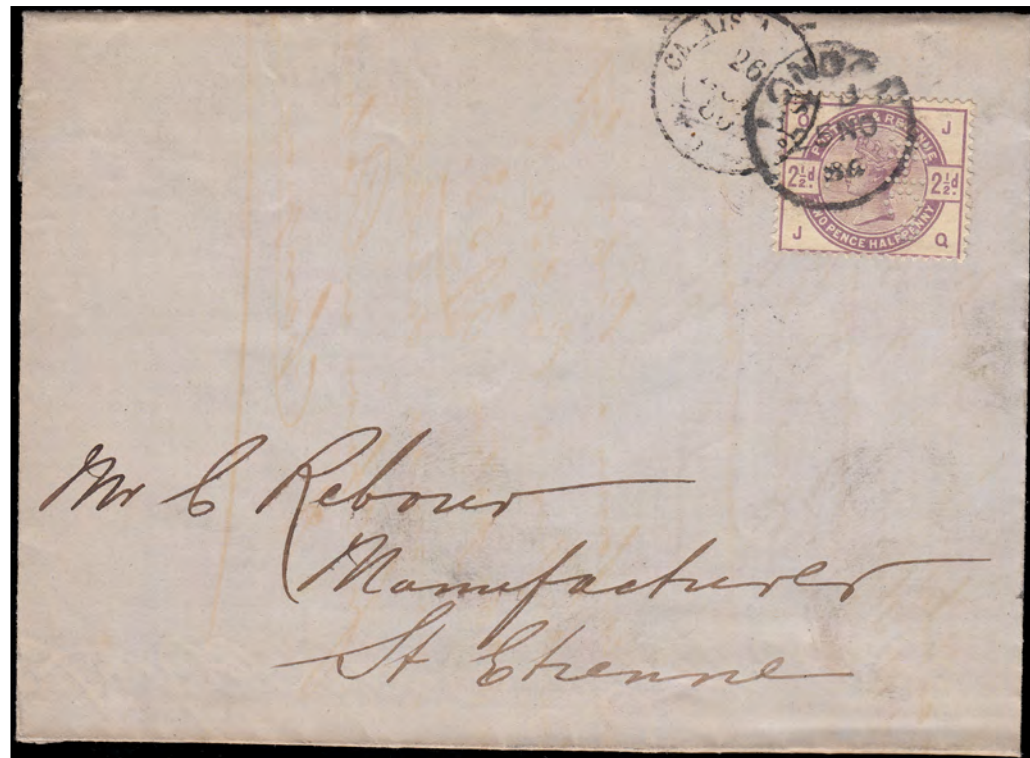 CALAIS A
26
LONDON
86
Q J
POSTAGE & REVENUE
2½d. 2½d.
TWO PENCE HALFPENNY
J Q
Mr C Rebour
Manufacturer
St Etienne